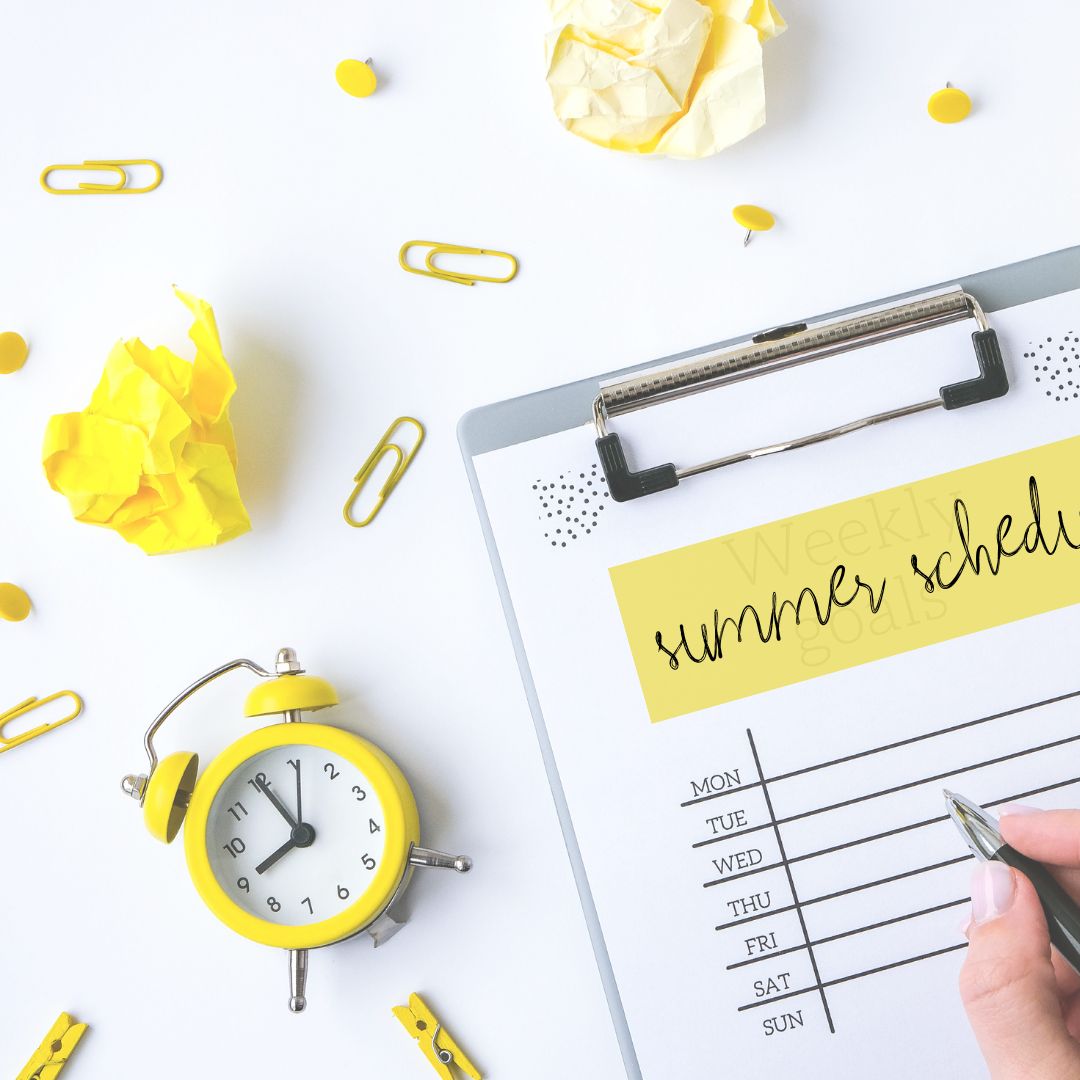 Weekly
summer schedu
goals
MON
TUE
WED
THU
FRI
SAT
SUN
12
1
2
3
4
5
6
7
8
9
10
11